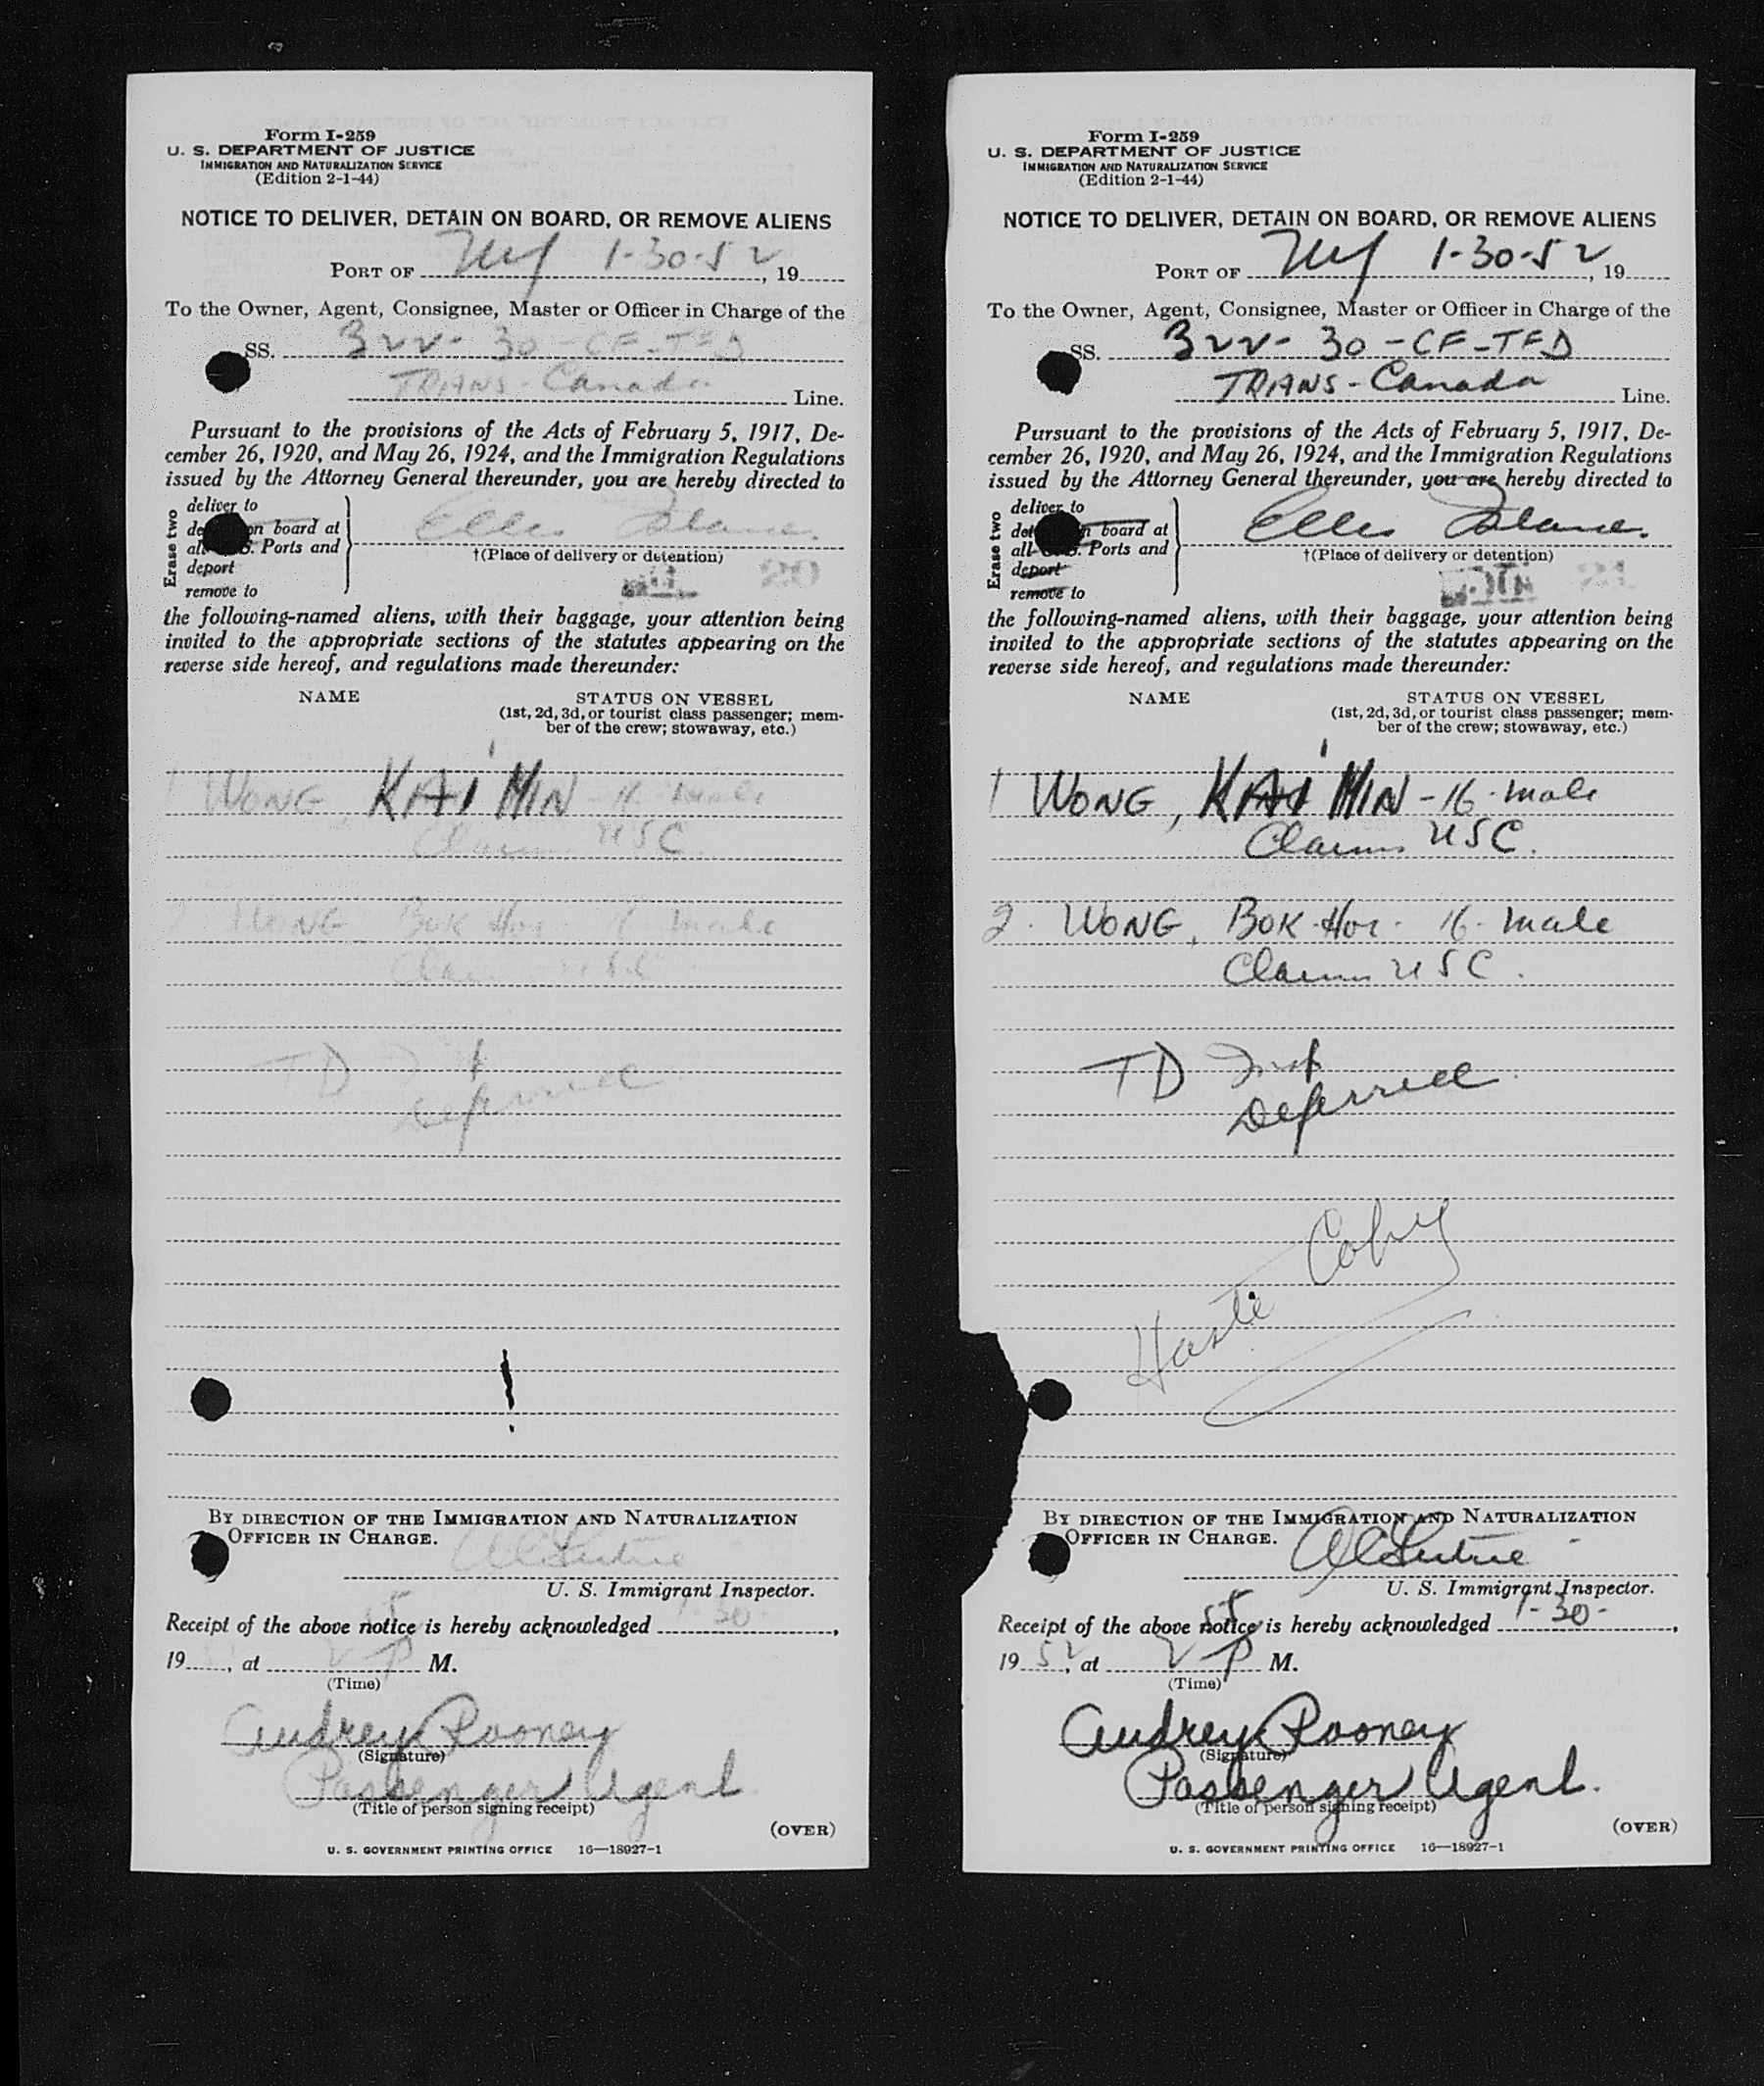 Form I-259
U. S. DEPARTMENT OF JUSTICE
IMMIGRATION AND NATURALIZATION SERVICE
(Edition 2-1-44)
NOTICE TO DELIVER, DETAIN ON BOARD, OR REMOVE ALIENS
PORT OF NY 1-30-52, 19
To the Owner, Agent, Consignee, Master or Officer in Charge of the
SS. 322- 30 -CF-TFD
TRANS-Canada Line.
Pursuant to the provisions of the Acts of February 5, 1917, De-
cember 26, 1920, and May 26, 1924, and the Immigration Regulations
issued by the Attorney General thereunder, you are hereby directed to
Erase two
deliver to
on board at
Ports and
deport
remove to
Ellis Island.
†(Place of delivery or detention)
the following-named aliens, with their baggage, your attention being
invited to the appropriate sections of the statutes appearing on the
reverse side hereof, and regulations made thereunder:
NAME STATUS ON VESSEL
(1st, 2d, 3d, or tourist class passenger; mem-
ber of the crew; stowaway, etc.)
1 WONG, KAI MIN - 16 - male
Claims USC
2 WONG, BOK Hor 16 male
Claims USC
TD Insp
Deferred
BY DIRECTION OF THE IMMIGRATION AND NATURALIZATION
OFFICER IN CHARGE.
U. S. Immigrant Inspector.
Receipt of the above notice is hereby acknowledged 1-30-,
19, at 2 55 P M.
(Time)
Audrey Rooney
(Signature)
Passenger Agent
(Title of person signing receipt)
(OVER)
U. S. GOVERNMENT PRINTING OFFICE 16—18927-1
Form I-259
U. S. DEPARTMENT OF JUSTICE
IMMIGRATION AND NATURALIZATION SERVICE
(Edition 2-1-44)
NOTICE TO DELIVER, DETAIN ON BOARD, OR REMOVE ALIENS
PORT OF NY 1-30-52, 19
To the Owner, Agent, Consignee, Master or Officer in Charge of the
SS. 322- 30 -CF-TFD
TRANS-Canada Line.
Pursuant to the provisions of the Acts of February 5, 1917, De-
cember 26, 1920, and May 26, 1924, and the Immigration Regulations
issued by the Attorney General thereunder, you are hereby directed to
Erase two
deliver to
board at
Ports and
deport
remove to
Ellis Island.
†(Place of delivery or detention)
the following-named aliens, with their baggage, your attention being
invited to the appropriate sections of the statutes appearing on the
reverse side hereof, and regulations made thereunder:
NAME STATUS ON VESSEL
(1st, 2d, 3d, or tourist class passenger; mem-
ber of the crew; stowaway, etc.)
1 WONG, KAI MIN - 16 - male
Claims USC.
2. WONG, BOK Hor - 16 - male
Claims USC.
TD Insp
Deferred.
Haste Copy
BY DIRECTION OF THE IMMIGRATION AND NATURALIZATION
OFFICER IN CHARGE.
U. S. Immigrant Inspector.
Receipt of the above notice is hereby acknowledged 1-30-,
1952, at 2 55 P M.
(Time)
Audrey Rooney
(Signature)
Passenger Agent.
(Title of person signing receipt)
(OVER)
U. S. GOVERNMENT PRINTING OFFICE 16—18927-1